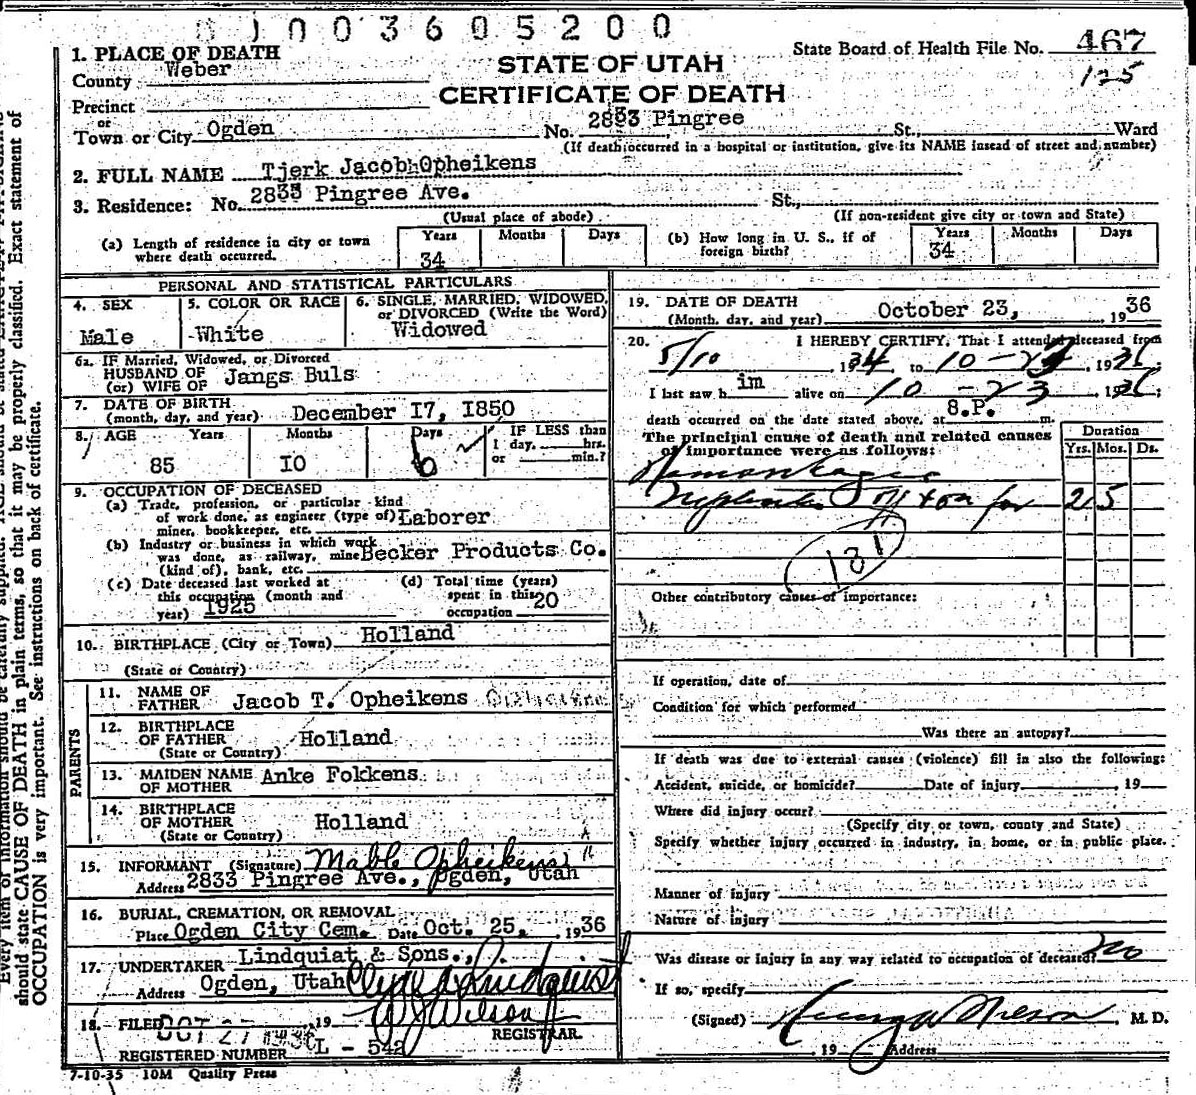 0 1 0 0 3 6 0 5 2 0 0
1. PLACE OF DEATH
County Weber
STATE OF UTAH
State Board of Health File No. 467
125
CERTIFICATE OF DEATH
Precinct
or
Town or City Ogden No. 2833 Pingree St., Ward
(If death occurred in a hospital or institution, give its NAME insead of street and number)
2. FULL NAME Tjerk Jacob Opheikens
3. Residence: No. 2833 Pingree Ave. St.,
(Usual place of abode) (If non-resident give city or town and State)
(a) Length of residence in city or town where death occurred. Years 34 Months Days
(b) How long in U. S., if of foreign birth? Years 34 Months Days
PERSONAL AND STATISTICAL PARTICULARS
4. SEX Male
5. COLOR OR RACE White
6. SINGLE, MARRIED, WIDOWED, or DIVORCED (Write the Word) Widowed
6a. IF Married, Widowed, or Divorced
HUSBAND OF
(or) WIFE OF Jangs Buls
7. DATE OF BIRTH
(month, day, and year) December I7, I850
8. AGE Years 85 Months IO Days 6 IF LESS than 1 day, hrs. or min.?
9. OCCUPATION OF DECEASED
(a) Trade, profession, or particular kind
of work done, as engineer (type of) Laborer
miner, bookkeeper, etc.
(b) Industry or business in which work
was done, as railway, mine Becker Products Co.
(kind of), bank, etc.
(c) Date deceased last worked at
this occupation (month and
year) 1925
(d) Total time (years)
spent in this
occupation 20
10. BIRTHPLACE (City or Town) Holland
(State or Country)
PARENTS
11. NAME OF
FATHER Jacob T. Opheikens
12. BIRTHPLACE
OF FATHER Holland
(State or Country)
13. MAIDEN NAME
OF MOTHER Anke Fokkens
14. BIRTHPLACE
OF MOTHER Holland
(State or Country)
15. INFORMANT (Signature) Mable Opheikens
Address 2833 Pingree Ave., Ogden, Utah
16. BURIAL, CREMATION, OR REMOVAL
Place Ogden City Cem. Date Oct. 25, 1936
17. UNDERTAKER Lindquiat & Sons.,
Address Ogden, Utah Clyde Lindquist
18. FILED OCT 27 1936 19 W J Wilson
REGISTRAR.
REGISTERED NUMBER L - 542
7-10-35 10M Quality Press
19. DATE OF DEATH
(Month, day, and year) October 23, 1936
20. I HEREBY CERTIFY, That I attended deceased from
5/10 1934 to 10-23, 1936
I last saw him alive on 10-23, 1936
death occurred on the date stated above, at 8.P. m.
The principal cause of death and related causes
of importance were as follows:
Duration
Yrs. Mos. Ds.
Hemorrhagic
Nephritis 2 5
131
Other contributory causes of importance:
If operation, date of
Condition for which performed
Was there an autopsy?
If death was due to external causes (violence) fill in also the following:
Accident, suicide, or homicide? Date of injury, 19
Where did injury occur?
(Specify city or town, county and State)
Specify whether injury occurred in industry, in home, or in public place.
Manner of injury
Nature of injury
Was disease or injury in any way related to occupation of deceased? no
If so, specify
(Signed) Wilson, M. D.
, 19 Address
should state CAUSE OF DEATH in plain terms, so that it may be properly classified. Exact statement of
OCCUPATION is very important. See instructions on back of certificate.